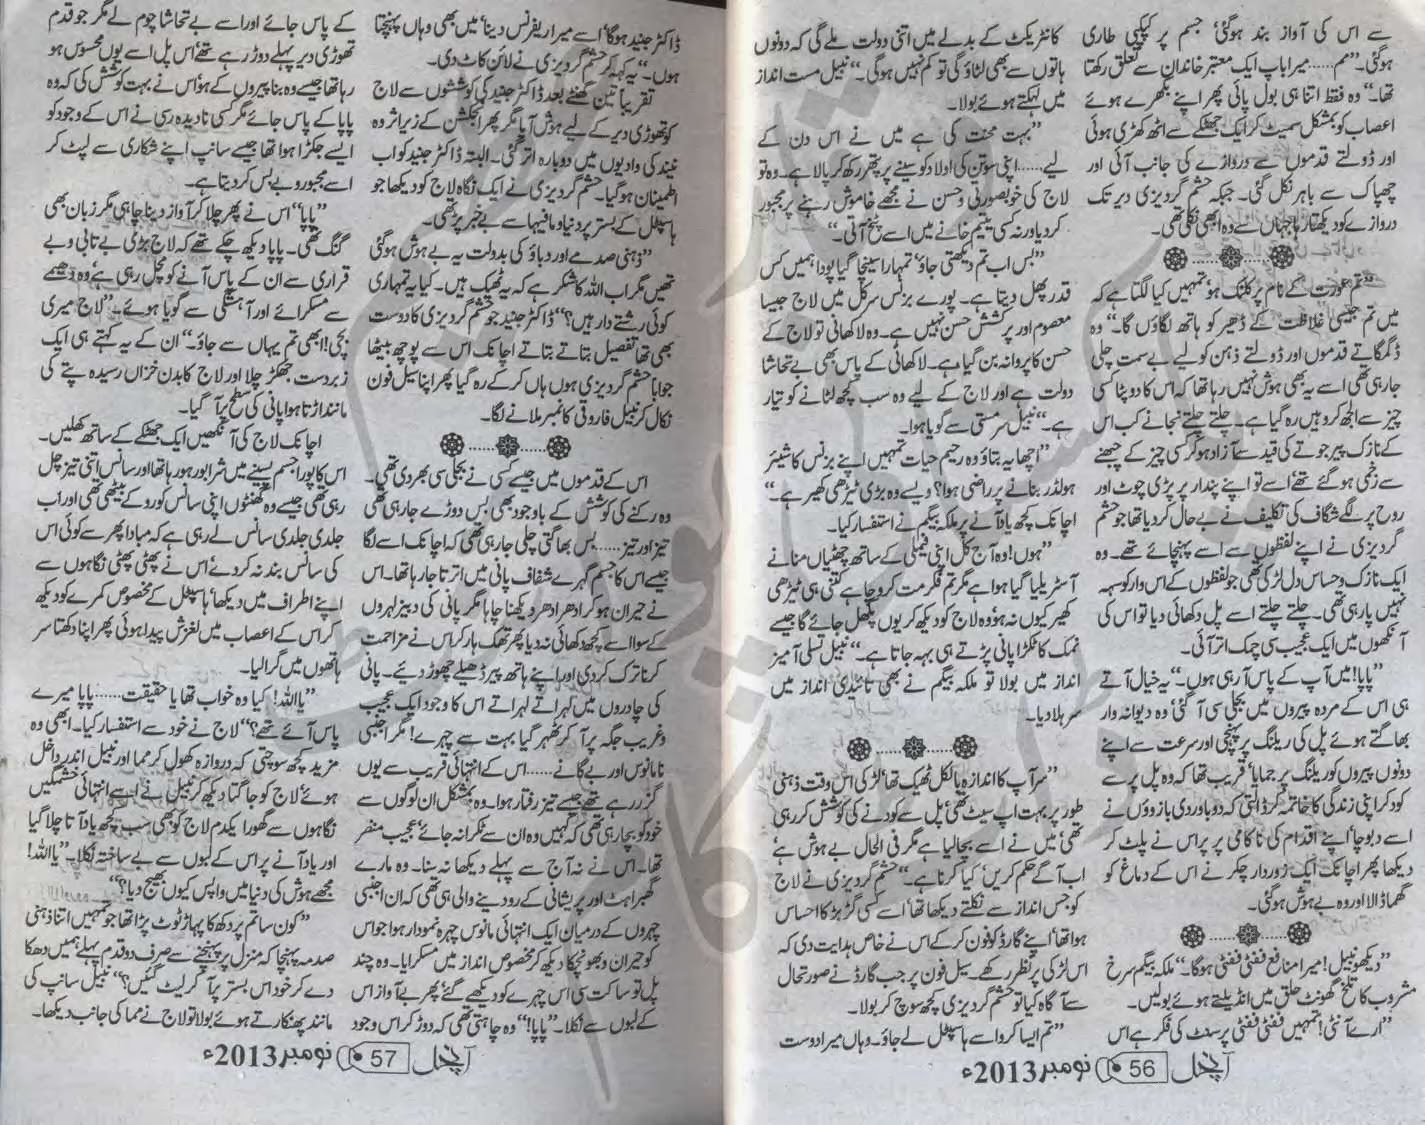 سے اس کی آواز بند ہوگئی‘ جسم پر کپکپی طاری
ہوگئی۔ ”مم..... میرا باپ ایک معتبر خاندان سے تعلق رکھتا
تھا۔“ وہ فقط اتنا ہی بول پائی پھر اپنے بکھرے ہوئے
اعصاب کو بمشکل سمیٹ کر ایک جھٹکے سے اٹھ کھڑی ہوئی
اور ڈولتے قدموں سے دروازے کی جانب آئی اور
چھپاک سے باہر نکل گئی۔ جبکہ حشم گردیزی دیر تک
دروازے کو دیکھتا رہا جہاں سے وہ ابھی نکلی تھی۔
”تم عورت کے نام پر کلنک ہو‘ تمہیں کیا لگتا ہے کہ
میں تم جیسی غلاظت کے ڈھیر کو ہاتھ لگاؤں گا۔“ وہ
ڈگمگاتے قدموں اور ڈولتے ذہن کو لیے بے سمت چلی
جارہی تھی اسے یہ بھی ہوش نہیں رہا تھا کہ اس کا دوپٹا کسی
چیز سے الجھ کر وہیں رہ گیا ہے۔ چلتے چلتے نجانے کب اس
کے نازک پیر جوتے کی قید سے آزاد ہوکر کسی چیز کے چبھنے
سے زخمی ہوگئے تھے‘ اسے تو اپنے پندار پر پڑی چوٹ اور
روح پر لگے شگاف کی تکلیف نے بے حال کردیا تھا جو حشم
گردیزی نے اپنے لفظوں سے اسے پہنچائے تھے۔ وہ
ایک نازک و حساس دل لڑکی تھی جو لفظوں کے اس وار کو سہہ
نہیں پارہی تھی۔ چلتے چلتے اسے پل دکھائی دیا تو اس کی
آنکھوں میں ایک عجیب سی چمک اتر آئی۔
”پاپا! میں آپ کے پاس آرہی ہوں۔“ یہ خیال آتے
ہی اس کے مردہ پیروں میں بجلی سی آگئی‘ وہ دیوانہ وار
بھاگتے ہوئے پل کی ریلنگ پر پہنچی اور سرعت سے اپنے
دونوں پیروں کو ریلنگ پر جمایا‘ قریب تھا کہ وہ پل پر سے
کود کر اپنی زندگی کا خاتمہ کر ڈالتی کہ دو باوردی بازوؤں نے
اسے دبوچا‘ اپنے اقدام کی ناکامی پر پر اس نے پلٹ کر
دیکھا پھر اچانک ایک زوردار چکر نے اس کے دماغ کو
گھما ڈالا اور وہ بے ہوش ہوگئی۔
”دیکھو نبیل! میرا منافع ففٹی ففٹی ہوگا۔“ ملکہ بیگم سرخ
مشروب کا تلخ گھونٹ حلق میں انڈیلتے ہوئے بولیں۔
”ارے آنٹی! تمہیں ففٹی ففٹی پرسنٹ کی فکر ہے اس
کانٹریکٹ کے بدلے میں اتنی دولت ملے گی کہ دونوں
ہاتوں سے بھی لٹاؤ گی تو کم نہیں ہوگی۔“ نبیل مست انداز
میں لہکتے ہوئے بولا۔
”بہت محنت کی ہے میں نے اس دن کے
لیے..... اپنی سوتن کی اولاد کو سینے پر پتھر رکھ کر پالا ہے۔ وہ تو
لاج کی خوبصورتی و حسن نے مجھے خاموش رہنے پر مجبور
کردیا ورنہ کسی یتیم خانے میں اسے پٹخ آتی۔“
”بس اب تم دیکھتی جاؤ‘ تمہارا سینچا گیا پودا ہمیں کس
قدر پھل دیتا ہے۔ پورے بزنس سرکل میں لاج جیسا
معصوم اور پرکشش حسن نہیں ہے۔ وہ لاکھانی تو لاج کے
حسن کا پروانہ بن گیا ہے۔ لاکھانی کے پاس بھی بے تحاشا
دولت ہے اور لاج کے لیے وہ سب کچھ لٹانے کو تیار
ہے۔“ نبیل سرمستی سے گویا ہوا۔
”اچھا یہ بتاؤ وہ رحیم حیات تمہیں اپنے بزنس کا شیئر
ہولڈر بنانے پر راضی ہوا؟ ویسے وہ بڑی ٹیڑھی کھیر ہے۔“
اچانک کچھ یاد آنے پر ملکہ بیگم نے استفسار کیا۔
”ہوں! وہ آج کل اپنی فیملی کے ساتھ چھٹیاں منانے
آسٹریلیا گیا ہوا ہے مگر تم فکر مت کرو چاہے کتنی ہی ٹیڑھی
کھیر کیوں نہ ہو وہ لاج کو دیکھ کر یوں پگھل جائے گا جیسے
نمک کا ٹکڑا پانی پڑتے ہی بہہ جاتا ہے۔“ نبیل تسلی آمیز
انداز میں بولا تو ملکہ بیگم نے بھی تائیدی انداز میں
سر ہلا دیا۔
”سر آپ کا اندازہ بالکل ٹھیک تھا‘ لڑکی اس وقت ذہنی
طور پر بہت اپ سیٹ تھی‘ پل سے کودنے کی کوشش کررہی
تھی‘ میں نے اسے بچالیا ہے مگر فی الحال بے ہوش ہے‘
اب آگے حکم کریں‘ کیا کرنا ہے۔“ حشم گردیزی نے لاج
کو جس انداز سے نکلتے دیکھا تھا‘ اسے کسی گڑبڑ کا احساس
ہوا تھا‘ اپنے گارڈ کو فون کرکے اس نے خاص ہدایت دی کہ
اس لڑکی پر نظر رکھے۔ سیل فون پر جب گارڈ نے صورتحال
سے آگاہ کیا تو حشم گردیزی کچھ سوچ کر بولا۔
”تم ایسا کرو اسے ہاسپٹل لے جاؤ۔ وہاں میرا دوست
آنچل 56 نومبر 2013ء
ڈاکٹر جنید ہوگا‘ اسے میرا ریفرنس دینا‘ میں بھی وہاں پہنچتا
ہوں۔“ یہ کہہ کر حشم گردیزی نے لائن کاٹ دی۔
تقریباً تین گھنٹے بعد ڈاکٹر جنید کی کوششوں سے لاج
کو تھوڑی دیر کے لیے ہوش آیا مگر پھر انجکشن کے زیراثر وہ
نیند کی وادیوں میں دوبارہ اتر گئی۔ البتہ ڈاکٹر جنید کو اب
اطمینان ہوگیا۔ حشم گردیزی نے ایک نگاہ لاج کو دیکھا جو
ہاسپٹل کے بستر پر دنیا و مافیہا سے بے خبر پڑی تھی۔
”ذہنی صدمے اور دباؤ کی بدولت یہ بے ہوش ہوگئی
تھیں مگر اب اللہ کا شکر ہے کہ یہ ٹھیک ہیں۔ کیا یہ تمہاری
کوئی رشتے دار ہیں؟“ ڈاکٹر جنید جو حشم گردیزی کا دوست
بھی تھا تفصیل بتاتے بتاتے اچانک اس سے پوچھ بیٹھا
جواباً حشم گردیزی ہوں ہاں کرکے رہ گیا پھر اپنا سیل فون
نکال کر نبیل فاروقی کا نمبر ملانے لگا۔
اس کے قدموں میں جیسے کسی نے بجلی سی بھردی تھی۔
وہ رکنے کی کوشش کے باوجود بھی بس دوڑے جارہی تھی
تیز اور تیز..... بس بھاگتی چلی جارہی تھی کہ اچانک اسے لگا
جیسے اس کا جسم گہرے شفاف پانی میں اترتا جارہا تھا۔ اس
نے حیران ہوکر ادھر ادھر دیکھنا چاہا مگر پانی کی دبیز لہروں
کے سوا اسے کچھ دکھائی نہ دیا پھر تھک ہار کر اس نے مزاحمت
کرنا ترک کردی اور اپنے ہاتھ پیر ڈھیلے چھوڑ دیے۔ پانی
کی چادروں میں لہراتے لہراتے اس کا وجود ایک عجیب
وغریب جگہ پر آکر ٹھہر گیا بہت سے چہرے! مگر اجنبی
نامانوس اور بے گانے..... اس کے انتہائی قریب سے یوں
گزر رہے تھے جیسے تیز رفتار ہوا۔ وہ بمشکل ان لوگوں سے
خود کو بچارہی تھی کہ کہیں وہ ان سے ٹکرا نہ جائے‘ عجیب منظر
تھا۔ اس نے نہ آج سے پہلے دیکھا نہ سنا۔ وہ مارے
گھبراہٹ اور پریشانی کے رو دینے والی ہی تھی کہ ان اجنبی
چہروں کے درمیان ایک انتہائی مانوس چہرہ نمودار ہوا جو اس
کو حیران و بھونچکا دیکھ کر مخصوص انداز میں مسکرایا۔ وہ چند
پل تو ساکت سی اس چہرے کو دیکھے گئے‘ پھر بے آواز اس
کے لبوں سے نکلا۔ ”پاپا!“ وہ چاہتی تھی کہ دوڑ کر اس وجود
کے پاس جائے اور اسے بے تحاشا چوم لے مگر جو قدم
تھوڑی دیر پہلے دوڑ رہے تھے‘ اس پل اسے یوں محسوس ہو
رہا تھا جیسے وہ بنا پیروں کے ہو‘ اس نے بہت کوشش کی کہ وہ
پاپا کے پاس جائے مگر کسی نادیدہ رسی نے اس کے وجود کو
ایسے جکڑا ہوا تھا جیسے سانپ اپنے شکاری سے لپٹ کر
اسے مجبور و بے بس کردیتا ہے۔
”پاپا“ اس نے پھر چلا کر آواز دینا چاہی مگر زبان بھی
گنگ تھی۔ پاپا دیکھ چکے تھے کہ لاج بڑی بے تابی و بے
قراری سے ان کے پاس آنے کو مچل رہی ہے‘ وہ دھیمے
سے مسکرائے اور آہستگی سے گویا ہوئے۔ ”لاج میری
بچی! ابھی تم یہاں سے جاؤ۔“ ان کے یہ کہتے ہی ایک
زبردست جھکڑ چلا اور لاج کا بدن خزاں رسیدہ پتے کی
مانند اڑتا ہوا پانی کی سطح پر آگیا۔
اچانک لاج کی آنکھیں ایک جھٹکے کے ساتھ کھلیں۔
اس کا پورا جسم پسینے میں شرابور ہورہا تھا اور سانس اتنی تیز چل
رہی تھی جیسے وہ گھنٹوں اپنی سانس کو روکے بیٹھی تھی اور اب
جلدی جلدی سانس لے رہی ہے کہ مبادا پھر سے کوئی اس
کی سانس بند نہ کردے‘ اس نے پھٹی پھٹی نگاہوں سے
اپنے اطراف میں دیکھا‘ ہاسپٹل کے مخصوص کمرے کو دیکھ
کر اس کے اعصاب میں لغزش پیدا ہوئی پھر اپنا دکھتا سر
ہاتھوں میں گرالیا۔
”یااللہ! کیا وہ خواب تھا یا حقیقت..... پاپا میرے
پاس آئے تھے؟“ لاج نے خود سے استفسار کیا۔ ابھی وہ
مزید کچھ سوچتی کہ دروازہ کھول کر مما اور نبیل اندر داخل
ہوئے‘ لاج کو جاگتا دیکھ کر نبیل نے اسے انتہائی خشمگیں
نگاہوں سے گھورا یکدم لاج کو بھی سب کچھ یاد آتا چلا گیا
اور یاد آنے پر اس کے لبوں سے بے ساختہ نکلا۔ ”یااللہ!
مجھے ہوش کی دنیا میں واپس کیوں بھیج دیا؟“
”کون سا تم پر دکھ کا پہاڑ ٹوٹ پڑا تھا جو تمہیں اتنا ذہنی
صدمہ پہنچا کہ منزل پر پہنچنے سے صرف دو قدم پہلے ہمیں دھکا
دے کر خود اس بستر پر آکر لیٹ گئیں؟“ نبیل سانپ کی
مانند پھنکارتے ہوئے بولا تو لاج نے مما کی جانب دیکھا۔
آنچل 57 نومبر 2013ء